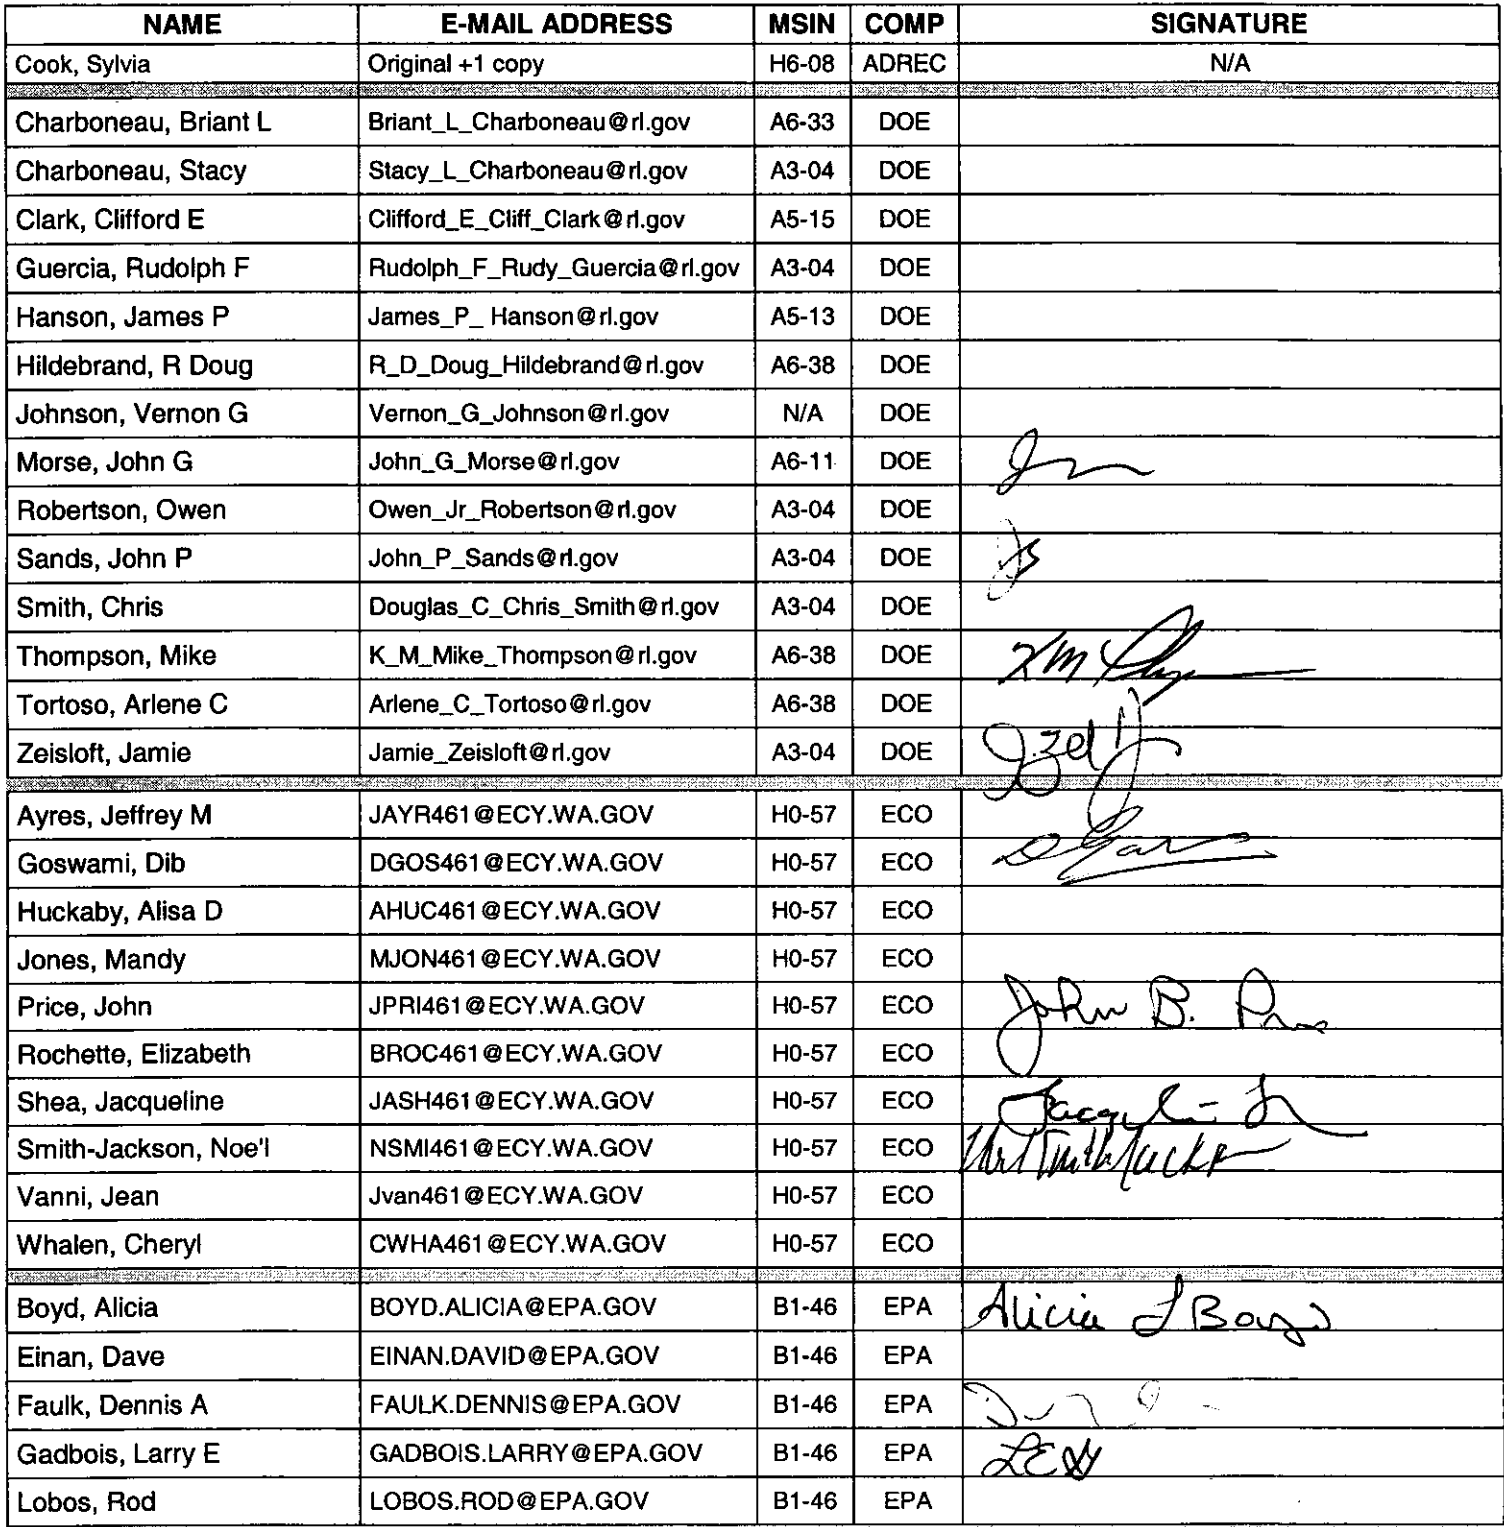 NAME E-MAIL ADDRESS MSIN COMP SIGNATURE
Cook, Sylvia Original +1 copy H6-08 ADREC N/A
Charboneau, Briant L Briant_L_Charboneau@rl.gov A6-33 DOE
Charboneau, Stacy Stacy_L_Charboneau@rl.gov A3-04 DOE
Clark, Clifford E Clifford_E_Cliff_Clark@rl.gov A5-15 DOE
Guercia, Rudolph F Rudolph_F_Rudy_Guercia@rl.gov A3-04 DOE
Hanson, James P James_P_ Hanson@rl.gov A5-13 DOE
Hildebrand, R Doug R_D_Doug_Hildebrand@rl.gov A6-38 DOE
Johnson, Vernon G Vernon_G_Johnson@rl.gov N/A DOE
Morse, John G John_G_Morse@rl.gov A6-11 DOE
Robertson, Owen Owen_Jr_Robertson@rl.gov A3-04 DOE
Sands, John P John_P_Sands@rl.gov A3-04 DOE
Smith, Chris Douglas_C_Chris_Smith@rl.gov A3-04 DOE
Thompson, Mike K_M_Mike_Thompson@rl.gov A6-38 DOE KM
Tortoso, Arlene C Arlene_C_Tortoso@rl.gov A6-38 DOE
Zeisloft, Jamie Jamie_Zeisloft@rl.gov A3-04 DOE
Ayres, Jeffrey M JAYR461@ECY.WA.GOV H0-57 ECO
Goswami, Dib DGOS461@ECY.WA.GOV H0-57 ECO
Huckaby, Alisa D AHUC461@ECY.WA.GOV H0-57 ECO
Jones, Mandy MJON461@ECY.WA.GOV H0-57 ECO
Price, John JPRI461@ECY.WA.GOV H0-57 ECO John B.
Rochette, Elizabeth BROC461@ECY.WA.GOV H0-57 ECO
Shea, Jacqueline JASH461@ECY.WA.GOV H0-57 ECO
Smith-Jackson, Noe'l NSMI461@ECY.WA.GOV H0-57 ECO
Vanni, Jean Jvan461@ECY.WA.GOV H0-57 ECO
Whalen, Cheryl CWHA461@ECY.WA.GOV H0-57 ECO
Boyd, Alicia BOYD.ALICIA@EPA.GOV B1-46 EPA Alicia L Boyd
Einan, Dave EINAN.DAVID@EPA.GOV B1-46 EPA
Faulk, Dennis A FAULK.DENNIS@EPA.GOV B1-46 EPA
Gadbois, Larry E GADBOIS.LARRY@EPA.GOV B1-46 EPA
Lobos, Rod LOBOS.ROD@EPA.GOV B1-46 EPA